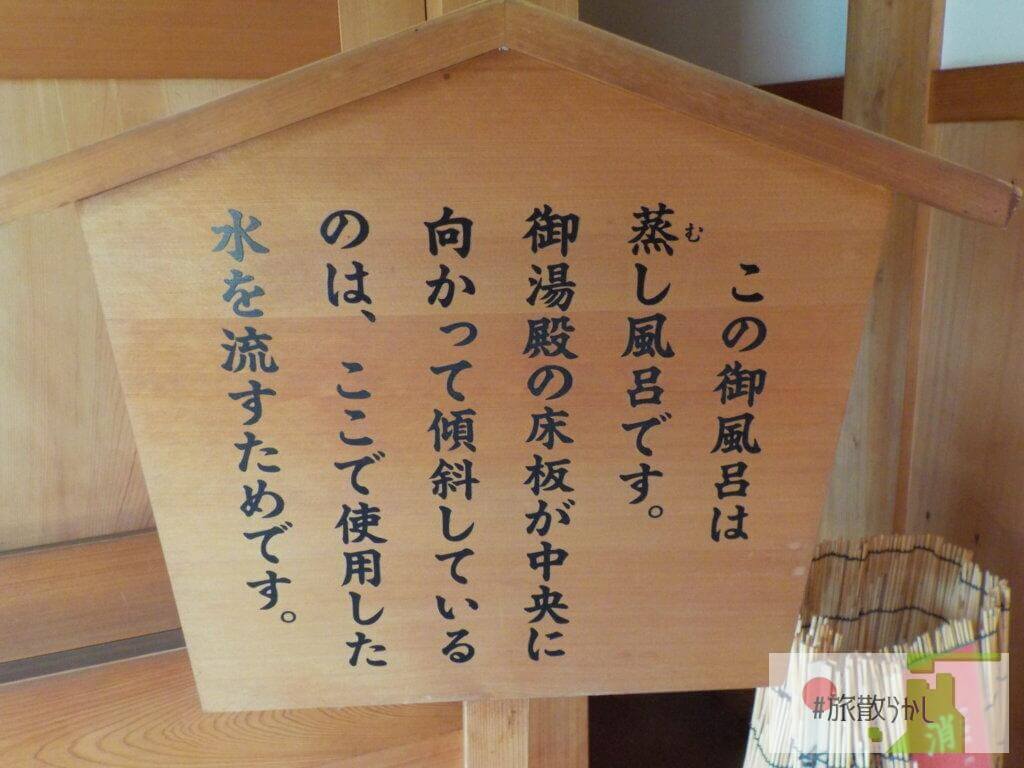 この御風呂は
蒸し風呂です。
む
御湯殿の床板が中央に
向かって傾斜している
のは、ここで使用した
水を流すためです。
#旅散らかし
消